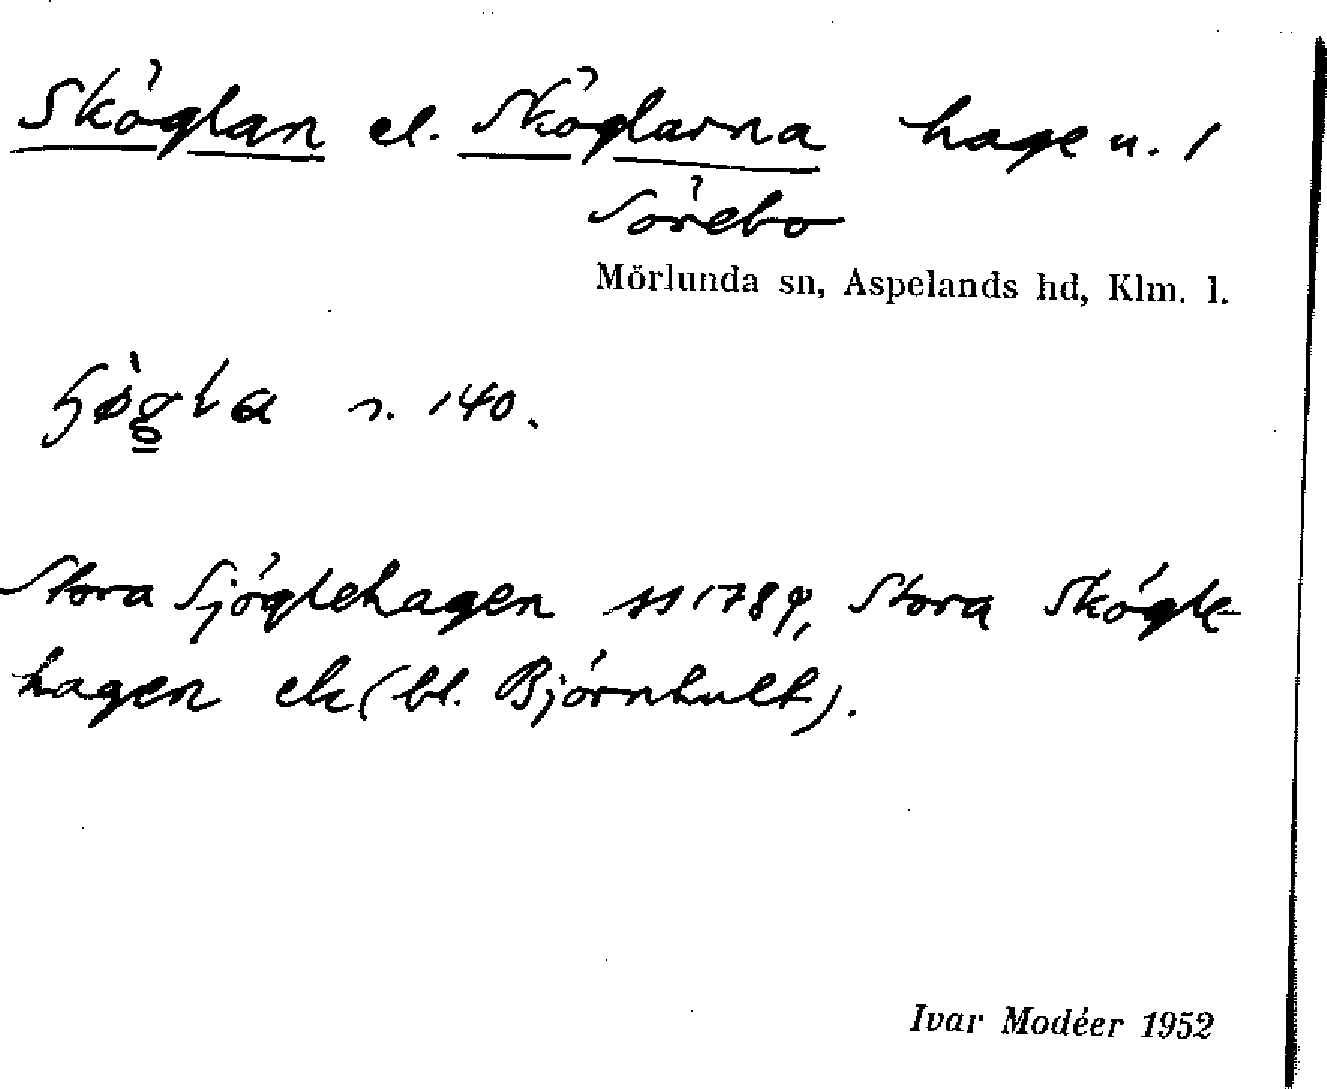 Sköglan el. Sköglarna hage u. 1
Sörebo
Mörlunda sn, Aspelands hd, Klm. l.
s. 140.
Stora Sjöglehagen ss 1789, Stora Skögle-
hagen ek (bl. Björnhult).
Ivar Modéer 1952